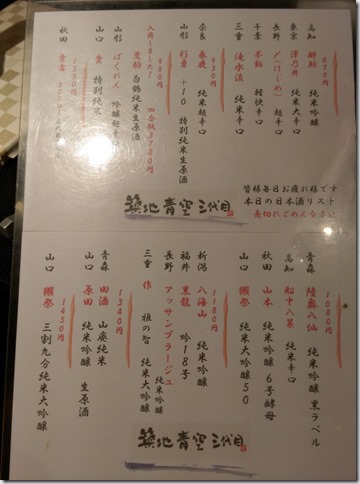 870円
高知 酔鯨 純米吟醸
東京 澤乃井 純米大辛口
長野 〆(しめ) 超辛口
千葉 不動 軽快辛口
三重 滝水流 純米辛口
930円
奈良 春鹿 純米超辛口
山形 杉勇 +10 特別純米生原酒
入荷しました! 四合瓶3780円
白鶴純米生原酒
980円
山形 ばくれん 吟醸超辛口
山口 貴 特別純米
1550円
秋田
皆様毎日お疲れ様です
本日の日本酒リスト
売切れごめんなさい
築地青空三代目
1080円
青森 陸奥八仙 純米吟醸 黒ラベル
高知 船中八策 純米辛口
秋田 山本 純米吟醸 6号酵母
山口 獺祭 純米大吟醸50
1180円
新潟 八海山 純米吟醸
福井 黒龍 吟18号
長野 アッサンブラージュ 純米吟醸
三重 作 雅の智 純米大吟醸
1340円
青森 田酒 山廃純米
山口 原田 純米吟醸 生原酒
1450円
山口 獺祭 三割九分純米大吟醸
築地青空三代目